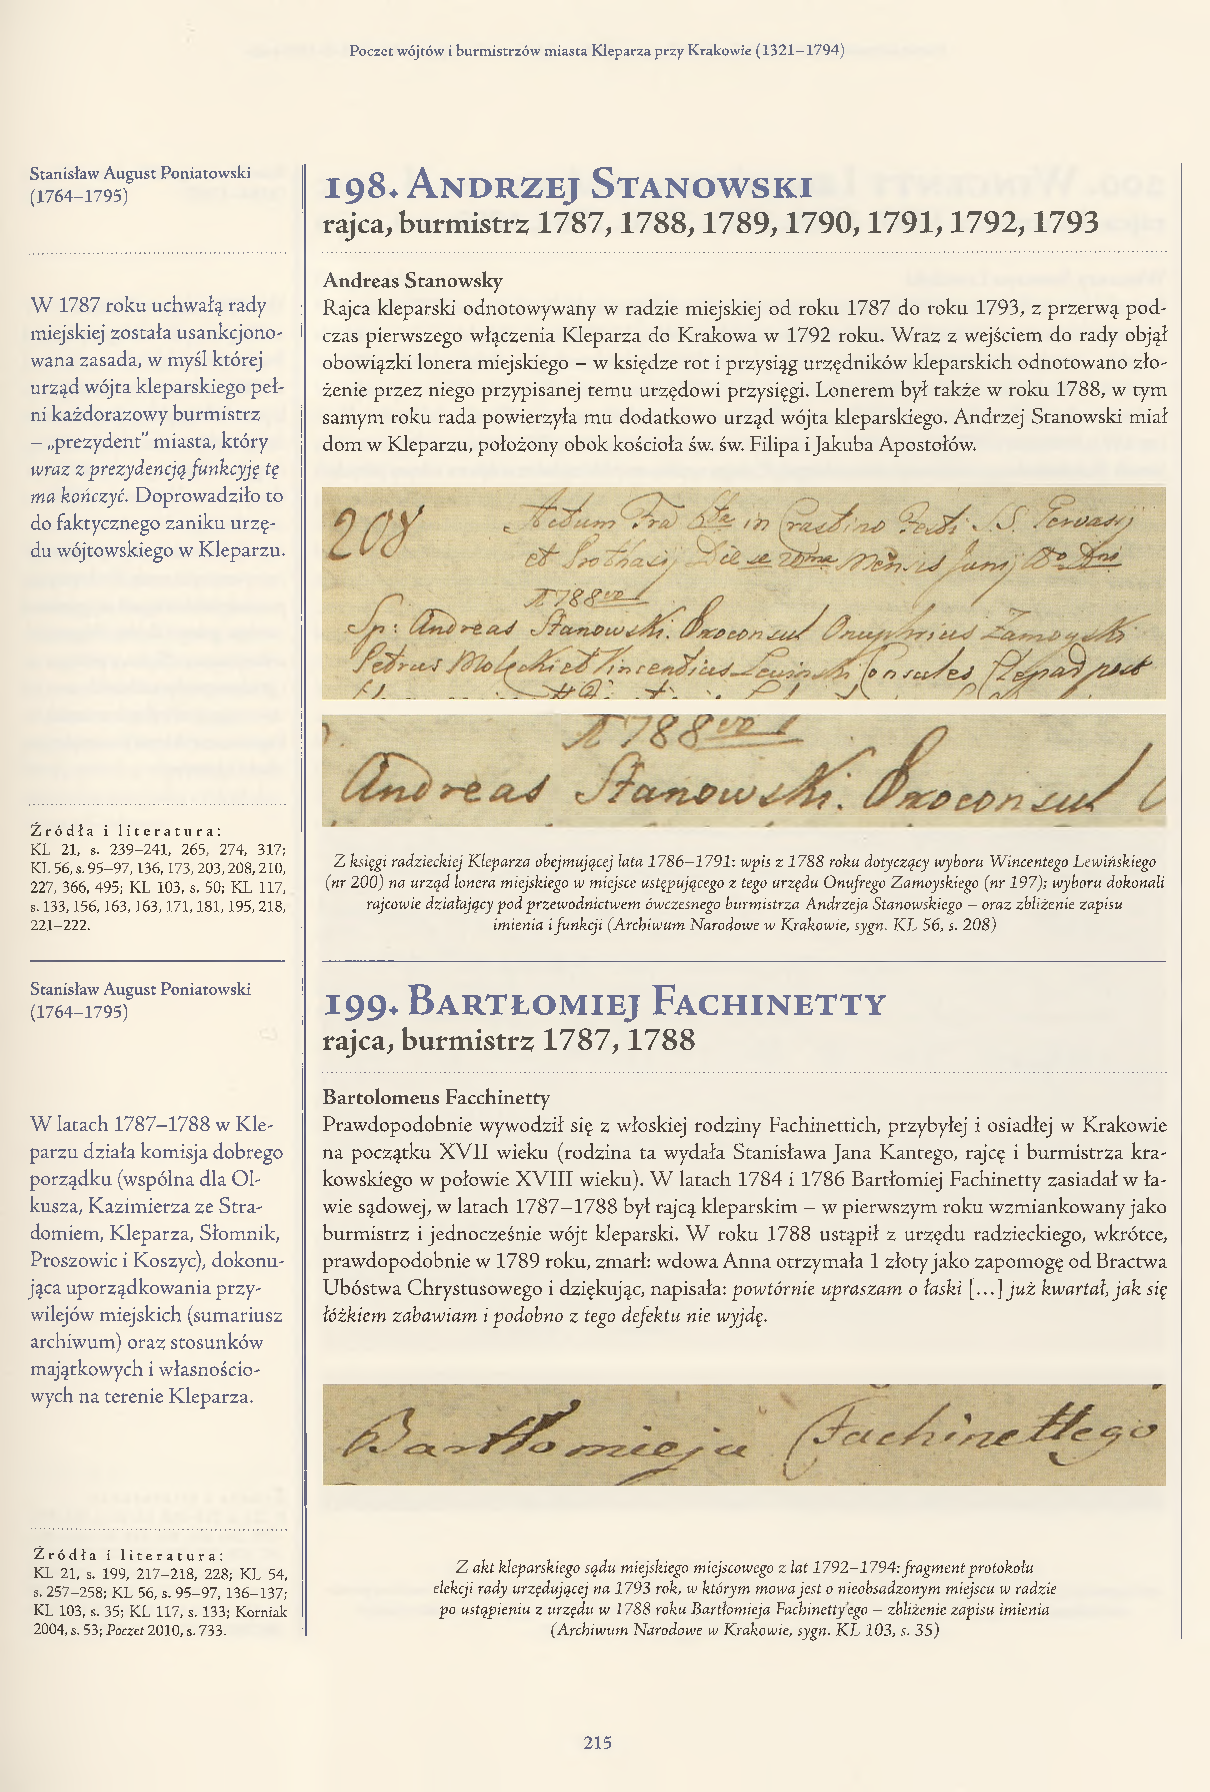 Poczet wójtów i burmistrzów miasta Kleparza przy Krakowie (1321–1794)
Stanisław August Poniatowski
(1764–1795)
W 1787 roku uchwałą rady
miejskiej została usankcjono-
wana zasada, w myśl której
urząd wójta kleparskiego peł-
ni każdorazowy burmistrz
– „prezydent" miasta, który
wraz z prezydencją funkcyję tę
ma kończyć. Doprowadziło to
do faktycznego zaniku urzę-
du wójtowskiego w Kleparzu.
Źródła i literatura:
KL 21, s. 239–241, 265, 274, 317;
KL 56, s. 95–97, 136, 173, 203, 208, 210,
227, 366, 495; KL 103, s. 50; KL 117,
s. 133, 156, 163, 163, 171, 181, 195, 218,
221–222.
198. Andrzej Stanowski
rajca, burmistrz 1787, 1788, 1789, 1790, 1791, 1792, 1793
Andreas Stanowsky
Rajca kleparski odnotowywany w radzie miejskiej od roku 1787 do roku 1793, z przerwą pod-
czas pierwszego włączenia Kleparza do Krakowa w 1792 roku. Wraz z wejściem do rady objął
obowiązki lonera miejskiego – w księdze rot i przysiąg urzędników kleparskich odnotowano zło-
żenie przez niego przypisanej temu urzędowi przysięgi. Lonerem był także w roku 1788, w tym
samym roku rada powierzyła mu dodatkowo urząd wójta kleparskiego. Andrzej Stanowski miał
dom w Kleparzu, położony obok kościoła św. św. Filipa i Jakuba Apostołów.
208 Actum Fra 6ta in Crastino Festi S.S. Gervasij
et Prothasij Die 20ma Mensis Junij Ao Dni
1788vo
Sp: Andreas Stanowski. Proconsul Onuphrius Zamoyski
Petrus Molecki et Vincentius Lewinski Consules Clepard post
1788vo
Andreas Stanowski. Proconsul
Z księgi radzieckiej Kleparza obejmującej lata 1786–1791: wpis z 1788 roku dotyczący wyboru Wincentego Lewińskiego
(nr 200) na urząd lonera miejskiego w miejsce ustępującego z tego urzędu Onufrego Zamoyskiego (nr 197); wyboru dokonali
rajcowie działający pod przewodnictwem ówczesnego burmistrza Andrzeja Stanowskiego – oraz zbliżenie zapisu
imienia i funkcji (Archiwum Narodowe w Krakowie, sygn. KL 56, s. 208)
Stanisław August Poniatowski
(1764–1795)
W latach 1787–1788 w Kle-
parzu działa komisja dobrego
porządku (wspólna dla Ol-
kusza, Kazimierza ze Stra-
domiem, Kleparza, Słomnik,
Proszowic i Koszyc), dokonu-
jąca uporządkowania przy-
wilejów miejskich (sumariusz
archiwum) oraz stosunków
majątkowych i własnościo-
wych na terenie Kleparza.
Źródła i literatura:
KL 21, s. 199, 217–218, 228; KL 54,
s. 257–258; KL 56, s. 95–97, 136–137;
KL 103, s. 35; KL 117, s. 133; Korniak
2004, s. 53; Poczet 2010, s. 733.
199. Bartłomiej Fachinetty
rajca, burmistrz 1787, 1788
Bartolomeus Facchinetty
Prawdopodobnie wywodził się z włoskiej rodziny Fachinettich, przybyłej i osiadłej w Krakowie
na początku XVII wieku (rodzina ta wydała Stanisława Jana Kantego, rajcę i burmistrza kra-
kowskiego w połowie XVIII wieku). W latach 1784 i 1786 Bartłomiej Fachinetty zasiadał w ła-
wie sądowej, w latach 1787–1788 był rajcą kleparskim – w pierwszym roku wzmiankowany jako
burmistrz i jednocześnie wójt kleparski. W roku 1788 ustąpił z urzędu radzieckiego, wkrótce,
prawdopodobnie w 1789 roku, zmarł: wdowa Anna otrzymała 1 złoty jako zapomogę od Bractwa
Ubóstwa Chrystusowego i dziękując, napisała: powtórnie upraszam o łaski [...] już kwartał, jak się
łóżkiem zabawiam i podobno z tego defektu nie wyjdę.
Bartłomieja Fachinettego
Z akt kleparskiego sądu miejskiego miejscowego z lat 1792–1794: fragment protokołu
elekcji rady urzędującej na 1793 rok, w którym mowa jest o nieobsadzonym miejscu w radzie
po ustąpieniu z urzędu w 1788 roku Bartłomieja Fachinetty'ego – zbliżenie zapisu imienia
(Archiwum Narodowe w Krakowie, sygn. KL 103, s. 35)
215